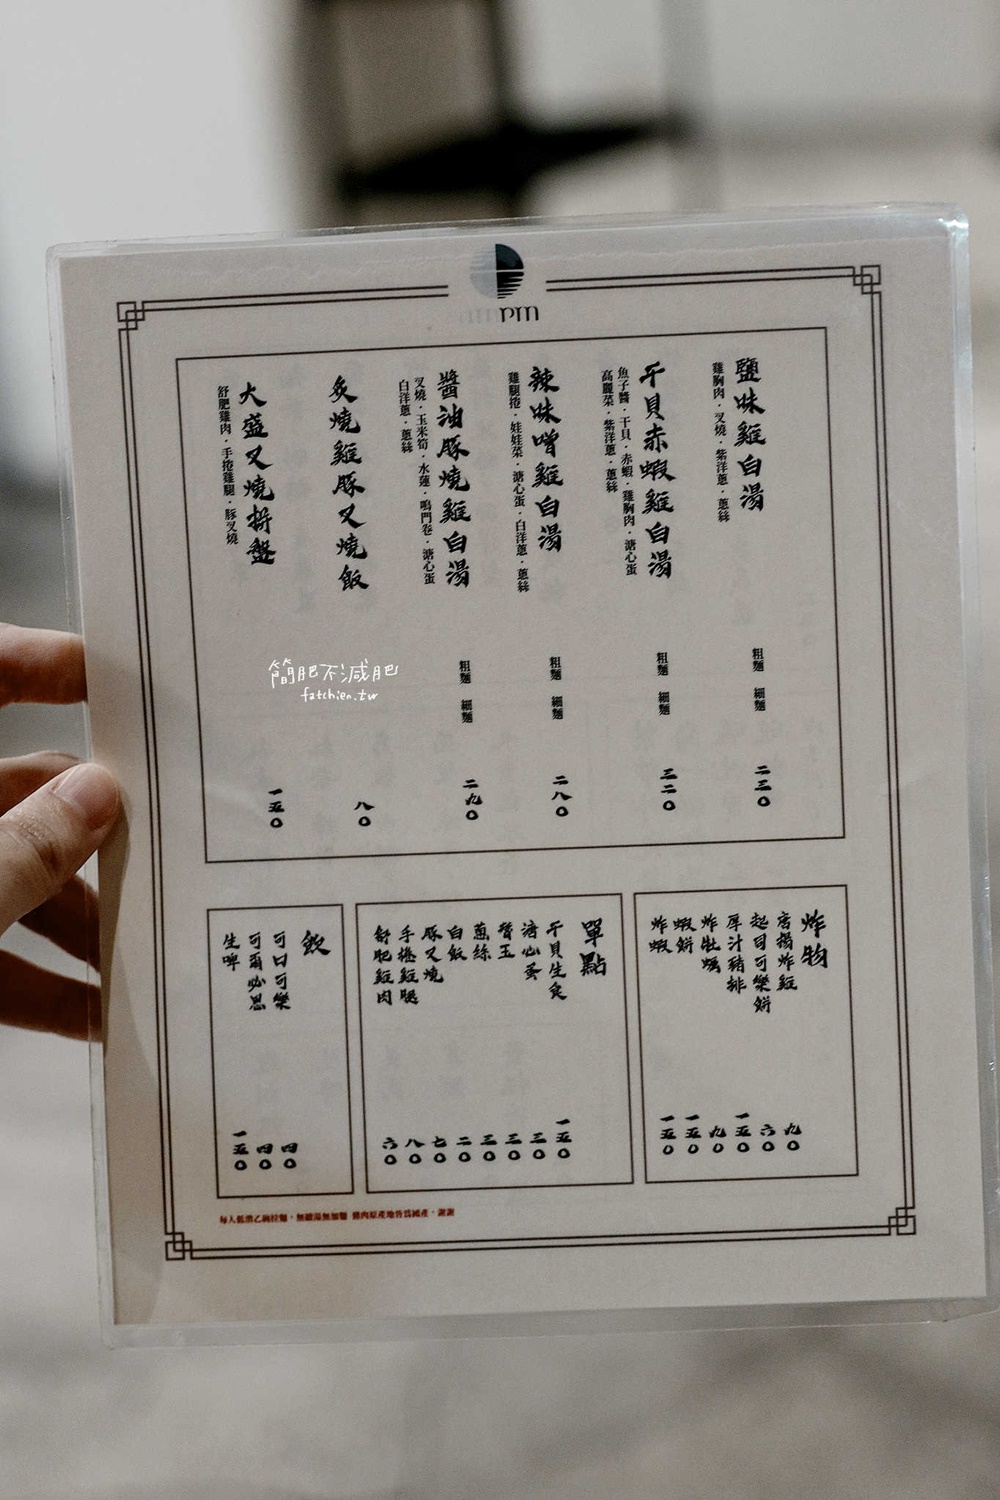 pm
鹽味雞白湯
雞胸肉．叉燒．紫洋蔥．蔥絲
粗麵 細麵
二三〇
干貝赤蝦雞白湯
魚子醬．干貝．赤蝦．雞胸肉．溏心蛋
高麗菜．紫洋蔥．蔥絲
粗麵 細麵
三二〇
辣味噌雞白湯
雞腿捲．娃娃菜．溏心蛋．白洋蔥．蔥絲
粗麵 細麵
二八〇
醬油豚燒雞白湯
叉燒．玉米筍．水蓮．鳴門卷．溏心蛋
白洋蔥．蔥絲
粗麵 細麵
二九〇
炙燒雞豚叉燒飯
八〇
大盛叉燒拼盤
舒肥雞肉．手捲雞腿．豚叉燒
一五〇
簡肥不減肥
fatchien.tw
炸物
唐揚炸雞 九〇
起司可樂餅 六〇
厚汁豬排 一五〇
炸牡蠣 九〇
蝦餅 一五〇
炸蝦 一五〇
單點
干貝生食 一五〇
溏心蛋 三〇
替玉 三〇
蔥絲 三〇
白飯 二〇
豚叉燒 七〇
手捲雞腿 八〇
舒肥雞肉 六〇
飲
可口可樂 四〇
可爾必思 四〇
生啤 一五〇
每人低消乙碗拉麵，無續湯無加麵 豬肉原產地皆為國產，謝謝